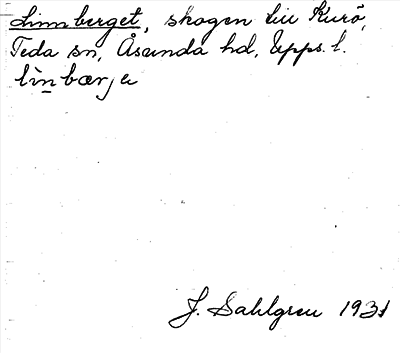 Linnberget, skogen till Kurö,
Teda sn, Åsunda hd, Upps. l.
li̇̀nbærje
J. Sahlgren 1931